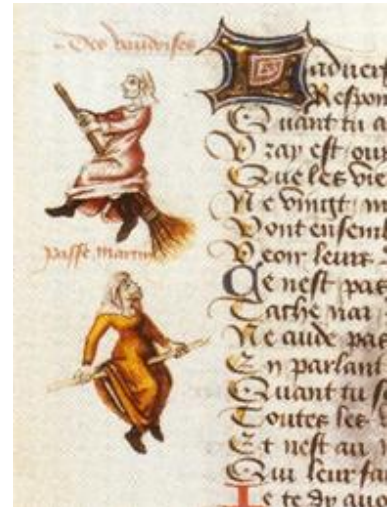 Des vaudoises
Passe Martin
Ladvert
Respon
Quant tu a
Vray est ouy
Que les vie
Ne vingt m
Vont ensemb
Veoir leurs
Ce nest pas
Tache nai
Ne cuide pas
En parlant
Quant tu s
Toutes les
Et nest au
Qui leur fai
Je te dy quo